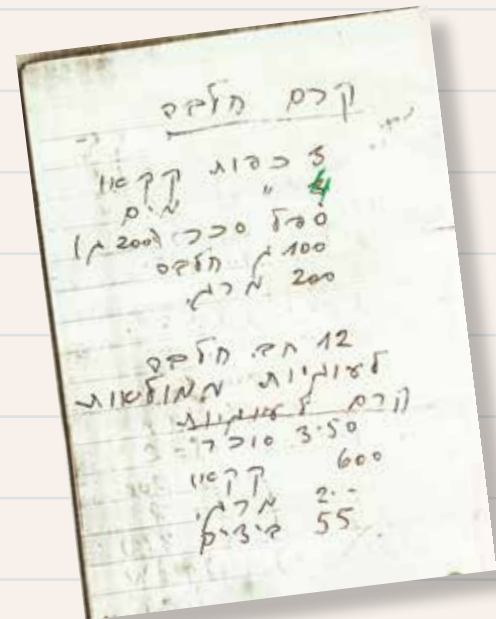 קרם חלבה
3 כפות קקאו
4 " מים
ספל סכר (200 ג)
100 ג חלבה
200 מרג.
12 חב. חלבה
לעוגיות ממולאות
קרם לעוגיות
3.50 סוכר
600 קקאו
2.- מרג.
55 ביצים